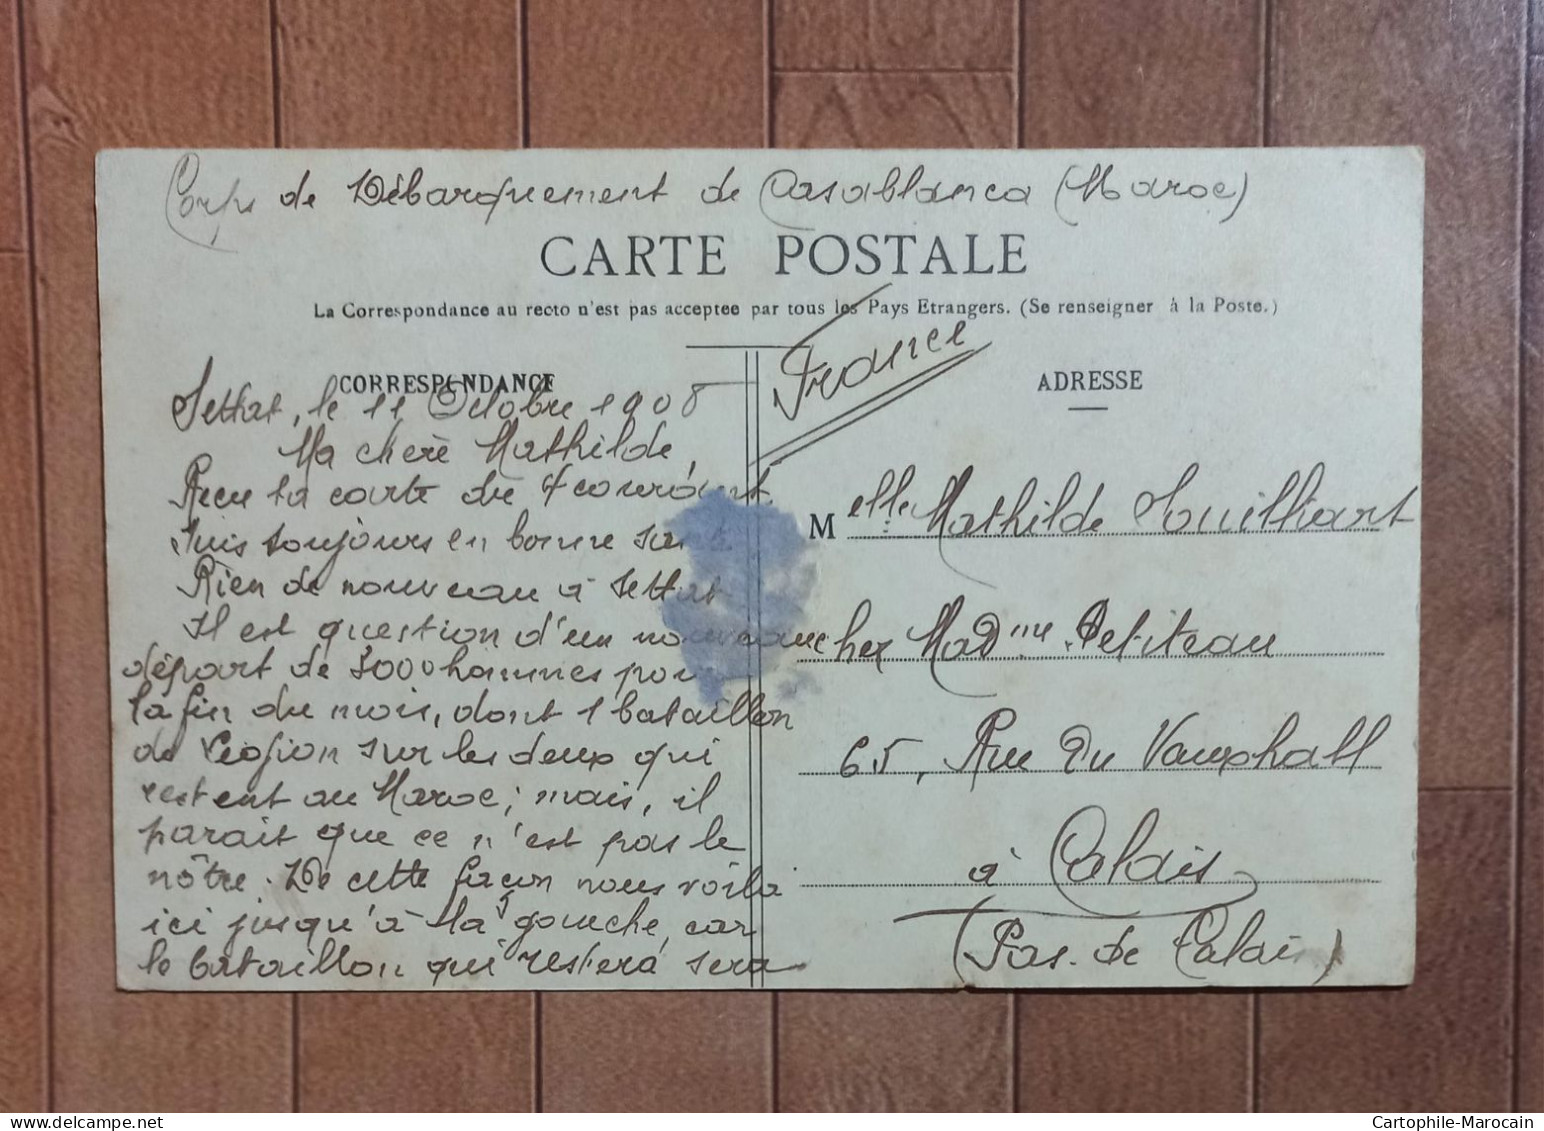 Corps de Débarquement de Casablanca (Maroc)
CARTE POSTALE
La Correspondance au recto n'est pas acceptee par tous les Pays Etrangers. (Se renseigner à la Poste.)
CORRESPONDANCE
Settat, le 11 Octobre 1908
Ma chère Mathilde,
Reçu ta carte du 4 courant.
Suis toujours en bonne santé
Rien de nouveau à Settat
Il est question d'un nouveau
départ de 3000 hommes pour
la fin du mois, dont 1 bataillon
de Légion sur les deux qui
restent au Maroc; mais, il
parait que ce n'est pas le
nôtre. De cette façon nous voilà
ici jusqu'à la gauche, car
le bataillon qui restera sera
France
ADRESSE
Melle Mathilde
chez Madame Petiteau
65, Rue du Vauxhall
à Calais
(Pas-de Calais)
Cartophile-Marocain